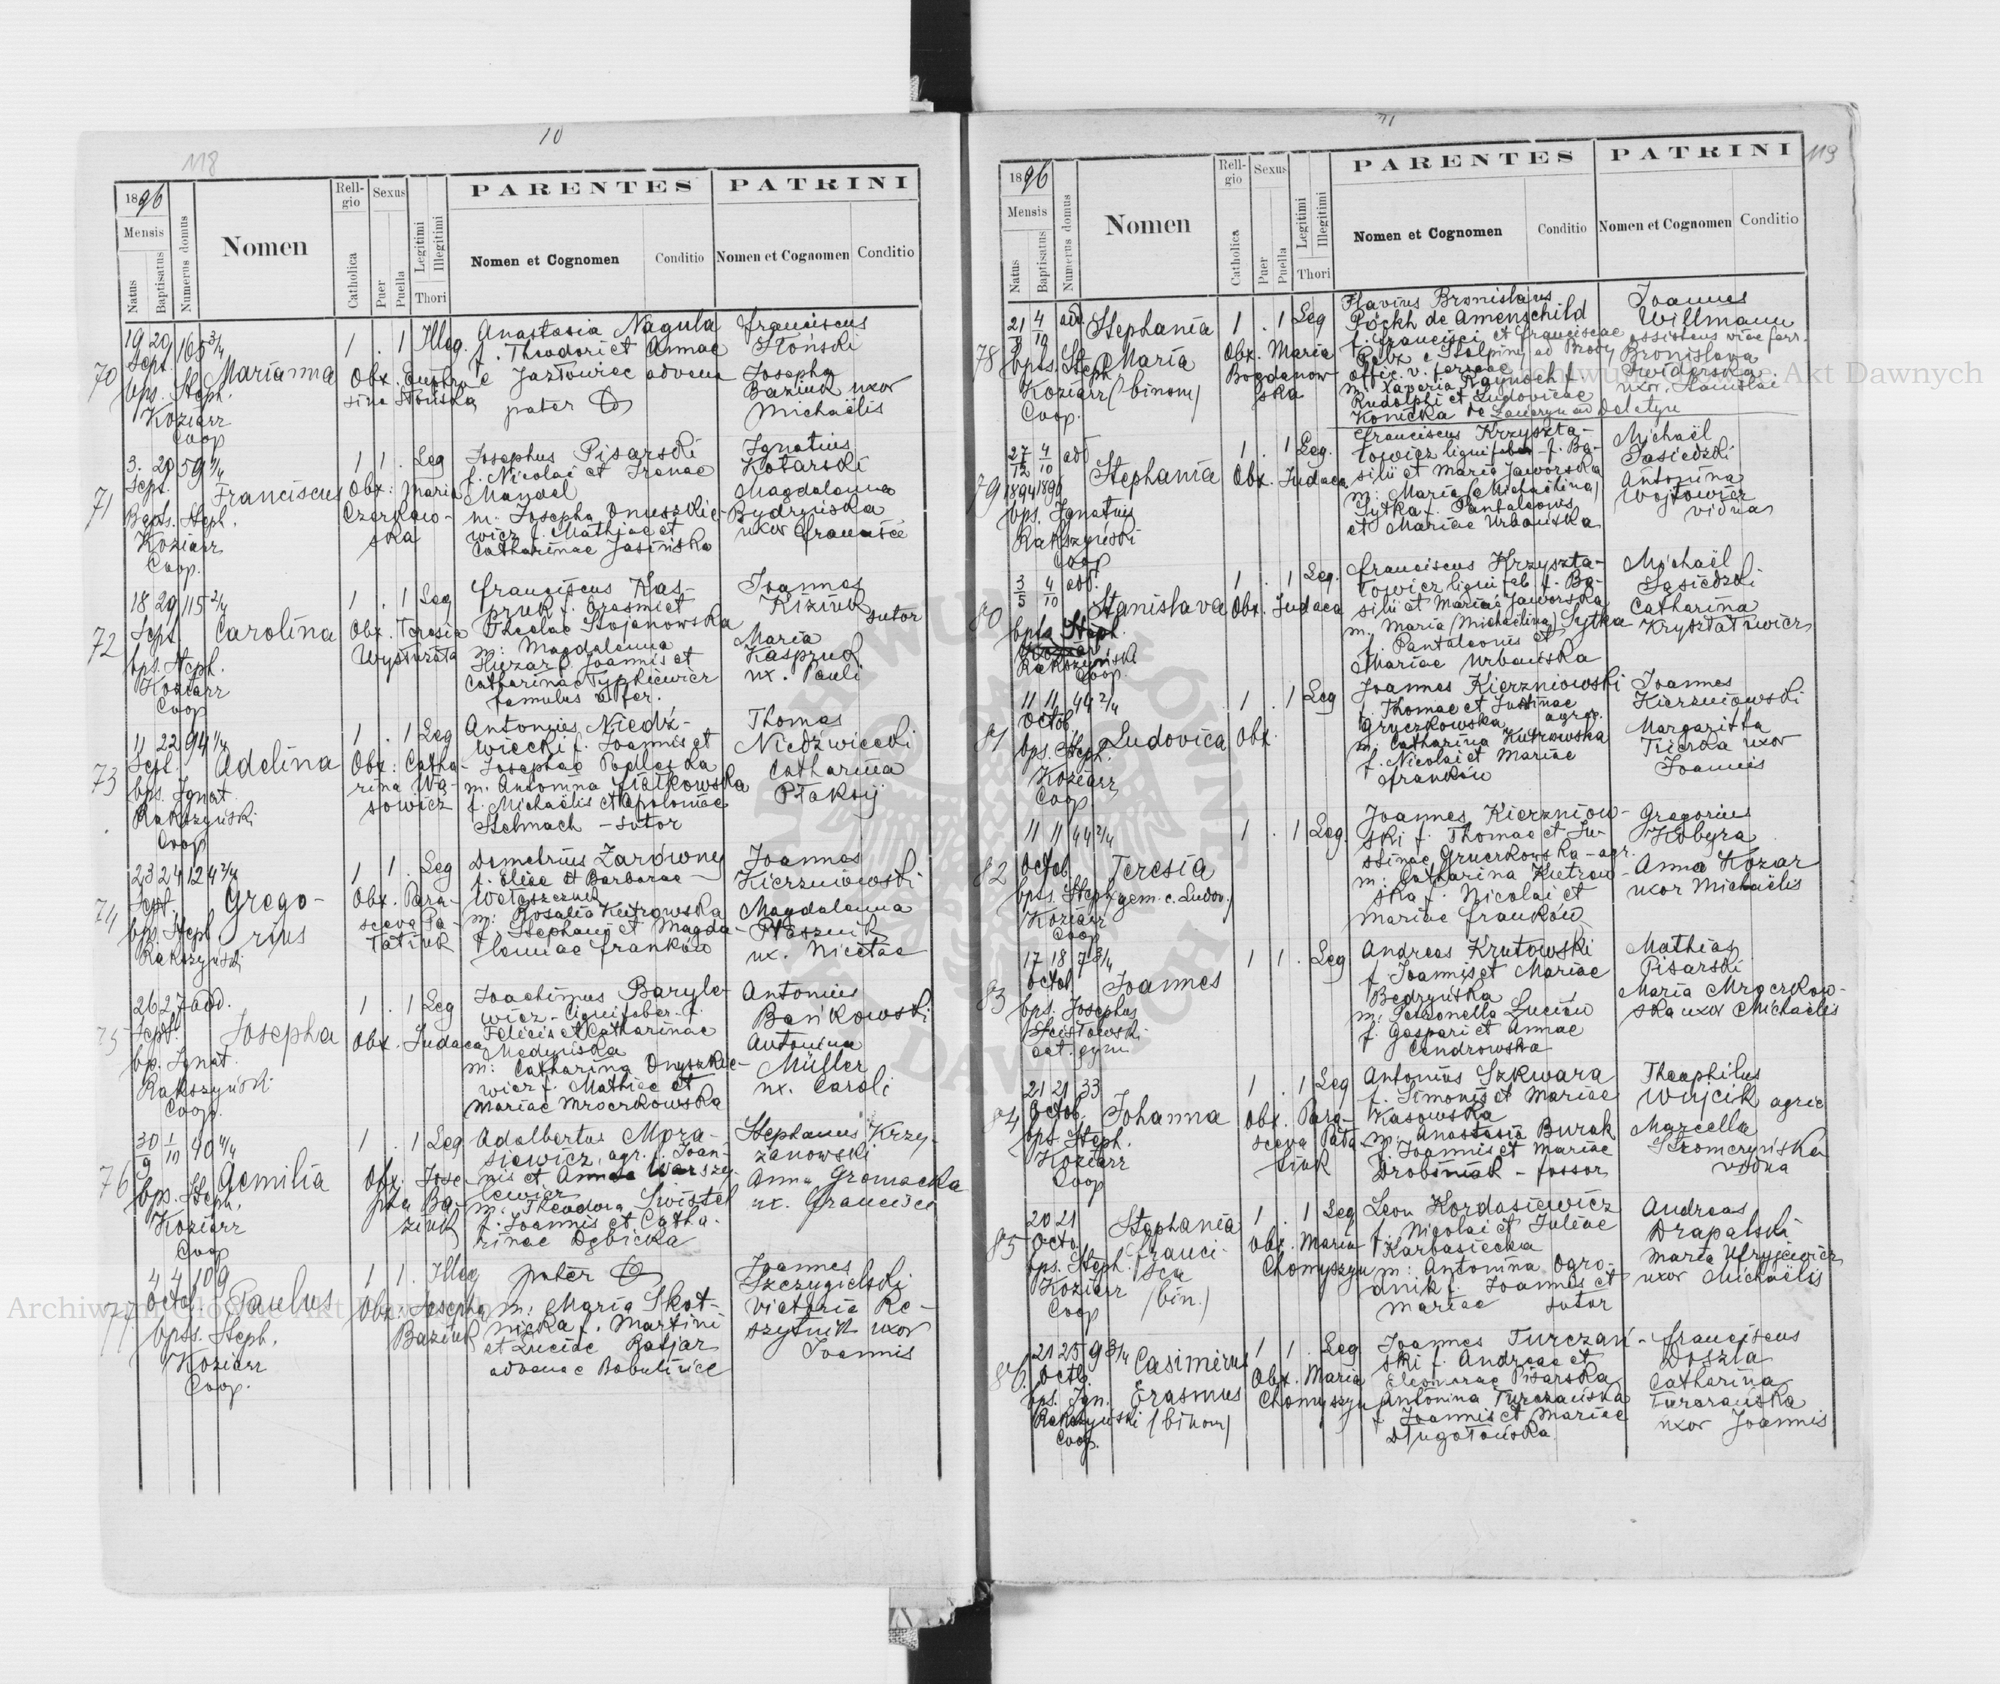 10
118
1896
Mensis
Natus
Baptisatus
Numerus domus
Nomen
Religio
Catholica
Sexus
Puer
Puella
Legitimi
Illegitimi
Thori
PARENTES
Nomen et Cognomen
Conditio
PATRINI
Nomen et Cognomen
Conditio
70
19 20 165 3/4
Sept.
bps. Steph.
Koziarr
Coop
Marianna
1 . 1 Illeg.
Obx. Euphro-
sina Słońska
Anastasia Nagula
f. Theodori et Annae
Jazłowiec advena
pater
Franciscus
Słoński
Josepha
Baziuk uxor
Michaëlis
71
3. 20 59 1/4
Sept.
Baps. Steph.
Koziarr
Coop.
Franciscus
1 1 . Leg
Obx: Maria
Czerkaw-
ska
Josephus Pisarski
f. Nicolai et Irenae
Mandel
m. Josepha Onuszkie-
wicz f. Mathiae et
Catharinae Jasińska
Ignatius
Kotarski
Magdalenna
Bydryńska
uxor Francisci
72
18 29 115 2/4
Sept.
bps. Steph.
Koziarr
Coop
Carolina
1 . 1 Leg
Obx. Teresia
Franciscus Kas-
pruk f. Erasmi et
Theclae Stojanowska
m: Magdalenna
Huzar f. Joannis et
Catharinae Typkiewicz
famulus
Joannes
Kiziuk
sutor
Maria
Kaspruk
ux. Pauli
73
11 22 94 1/4
Sept.
bps. Ignat.
Rakszyński
Coop
Adelina
1 . 1 Leg
Obx: Catha-
rina Wą-
sowicz
Antonius Niedź-
wiecki f. Joannis et
Josephae Podleska
m. Antonina Fiałkowska
f. Michaëlis et Apoloniae
Stelmach - sutor
Thomas
Niedźwiecki
Catharina
Płaksij
74
23 24 124 2/4
Sept.
bp. Steph
Rakszyński
Grego-
rius
1 1 . Leg
Obx. Para-
sceva Pa-
Demetrius Żarówny
f. Eliae et Barbarae
m: Rosalia Kutrowska
f. Stephani et Magda-
lennae Franków
Joannes
Kierzniowski
Magdalenna
Ptasznik
ux. Nicetae
75
26 27 adv.
Sept.
bp. Ignat.
Rakszyński
Coop.
Josepha
1 . 1 Leg
Obx. Judaea
Joachimus Baryle-
wicz - lignifaber f.
Felicis et Catharinae
Medyńska
m: Catharina Onyszkie-
wicz f. Mathiae et
Mariae Mroczkowska
Antonius
Bańkowski
Antonina
Müller
ux. Caroli
76
30/9 1/10 40 4/4
bps. Steph.
Koziarr
Coop
Aemilia
1 . 1 Leg
Obx. Jose-
pha Ba-
ziuk
Adalbertus Mora-
siewicz, agr. f. Joan-
nis et Annae Warsze-
lewicz
m: Theodora Świstel
f. Joannis et Catha-
rinae Dębicka
Stephanus Krzy-
żanowski
Anna Gromacka
ux. Francisci
77
4 4 109
Octob
bps. Steph.
Koziarr
Coop.
Paulus
1 1 . Illeg
Obx: Josepha
Baziuk
pater
m: Maria Skot-
nicka f. Martini
et Luciae Ratjar
advenae Bobulińce
Joannes
Szczygielski
Victoria Re-
szytnik uxor
Joannis
11
119
1896
Mensis
Natus
Baptisatus
Numerus domus
Nomen
Religio
Catholica
Sexus
Puer
Puella
Legitimi
Illegitimi
Thori
PARENTES
Nomen et Cognomen
Conditio
PATRINI
Nomen et Cognomen
Conditio
78
21/9 4/10 adv.
bpts. Steph
Koziarr
Coop.
Stephania
Maria
(binom)
1 . 1 Leg
Obx. Maria
Bogdanow-
ska
Flavius Bronislaus
Pöckh de Amenschild
f. Francisci et Franciscae
offic. v. ferreae
m. Xaveria Raynoch f.
Rudolphi et Ludovicae
Konicka
Joannes
Willmann
assistens viae ferr.
Bronislawa
Świderska
uxor Stanislai
79
27/12 4/10 adv
1894 1896
bps. Ignatius
Rakszyński
Coop
Stephania
1 . 1 Leg.
Obx. Judaea
Franciscus Krzyszta-
łowicz lignifaber f. Ba-
silii et Maria Jaworska
m: Maria (Michaëlina)
Sytka f. Pantaleonis
et Mariae Urbańska
Michaël
Sasiedzki
Antonina
Wojtowicz
vidua
80
3/5 4/10 adv.
bpta Steph.
Rakszyński
Coop.
Stanislava
1 . 1 Leg.
Obx. Judaea
Franciscus Krzyszta-
łowicz lignifab. f. Ba-
silii et Mariae Jaworska
m. Maria (Michaëlina) Sytka
f. Pantaleonis et
Mariae Urbańska
Michaël
Sasiedzki
Catharina
Kryształowicz
81
11 11 44 2/4
Octob
bps. Steph.
Koziarr
Coop
Ludovica
1 . 1 Leg
Obx.
Joannes Kierzniowski
f. Thomae et Justinae
Gruczkowska agric.
m. Catharina Kutrowska
f. Nicolai et Mariae
Franków
Joannes
Kierzniowski
Margaritta
Tierska uxor
Joannis
82
11 11 44 2/4
Octob
bps. Steph
Koziarr
Coop
Teresia
gem. c. Ludov.)
1 . 1 Leg.
Joannes Kierzniow-
ski f. Thomae et Ju-
stinae Gruczkowska - agr.
m: Catharina Kutrow-
ska f. Nicolai et
Mariae Franków
Gregorius
Kobyra
Anna Kozar
uxor Michaëlis
83
17 18 7 3/4
Octob
bps. Josephus
Ścisłowski
cat. gym
Joannes
1 1 . Leg
Andreas Krutowski
f. Joannis et Mariae
Bedryńska
m: Petronella Luciów
f. Gaspari et Annae
Cendrowska
Mathias
Pisarski
Maria Mroczkow-
ska uxor Michaëlis
84
21 21 33
Octob.
bps. Steph.
Koziarr
Coop
Johanna
1 . 1 Leg
Obx. Para-
sceva Pata-
Antonius Szkwara
f. Simonis et Mariae
Kasowska
m: Anastasia Burak
f. Joannis et Mariae
Drobiniak - fossor
Theophilus
Wujcik agric
Marcella
Skomoryńska
vidua
85
20 21
Octo
bps. Steph.
Koziarr
Coop
Stephania
Franci-
sca
(bin.)
1 . 1 Leg
Obx. Maria
Chomyszyn
Leon Kordasiewicz
f. Nicolai et Juliae
Karbasiecka
m: Antonina Ogro-
dnik f. Joannis et
Mariae sutor
Andreas
Drapalski
Maria Ufryjewicz
uxor Michaëlis
86
21 25 9 3/4
Octb.
bps. Ign.
Rakszyński
Coop.
Casimirus
Erasmus
(binom)
1 1 . Leg
Obx. Maria
Chomyszyn
Joannes Turczań-
ski f. Andreae et
Eleonorae Pisarska
Antonina Turczańska
f. Joannis et Mariae
Długołańska
Franciscus
Doszla
Catharina
Turczańska
uxor Joannis
Archiwum Główne Akt Dawnych